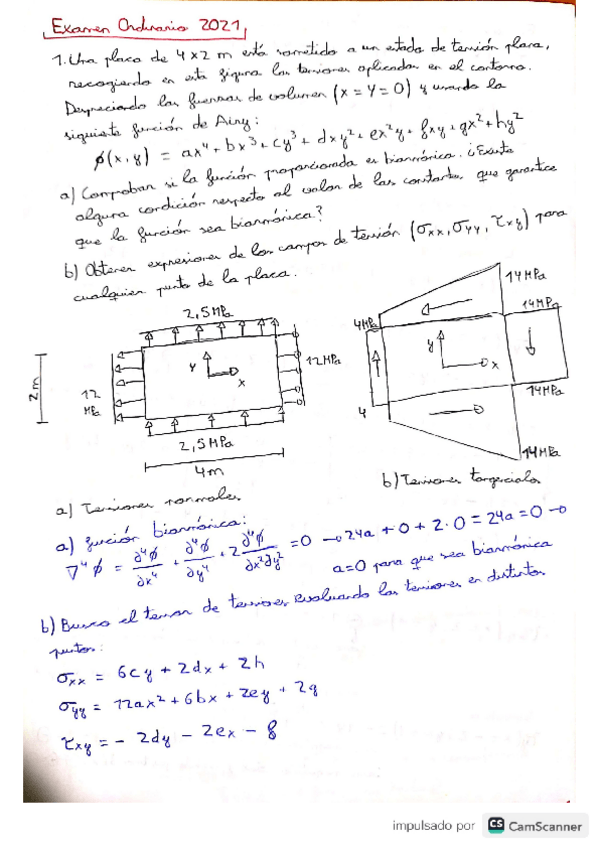 Examen Ordinario 2021
1. Una placa de 4x2 m está sometida a un estado de tensión plana,
recogiendo en esta figura las tensiones aplicadas en el contorno.
Despreciando las fuerzas de volumen (x = Y = 0) y usando la
siguiente función de Airy:
ϕ(x,y) = ax⁴ + bx³ + cy³ + dxy² + ex²y + fxy + gx² + hy²
a) Comprobar si la función proporcionada es biarmónica. ¿Existe
alguna condición respecto al valor de las constantes que garantice
que la función sea biarmónica?
b) Obtener expresiones de los campos de tensión (σxx, σyy, τxy) para
cualquier punto de la placa.
2,5 MPa
14 MPa
4MPa
14 MPa
12 MPa
y
x
y
x
2m
12 MPa
4
14 MPa
2,5 MPa
14 MPa
4m
a) Tensiones normales
b) Tensiones tangenciales
a) función biarmónica:
∇⁴ϕ = ∂⁴ϕ/∂x⁴ + ∂⁴ϕ/∂y⁴ + 2 ∂⁴ϕ/∂x²∂y² = 0 → 24a + 0 + 2·0 = 24a = 0 →
a=0 para que sea biarmónica
b) Busco el tensor de tensiones, evaluando las tensiones en distintos
puntos:
σxx = 6cy + 2dx + 2h
σyy = 12ax² + 6bx + 2ey + 2g
τxy = - 2dy - 2ex - f
impulsado por CS CamScanner